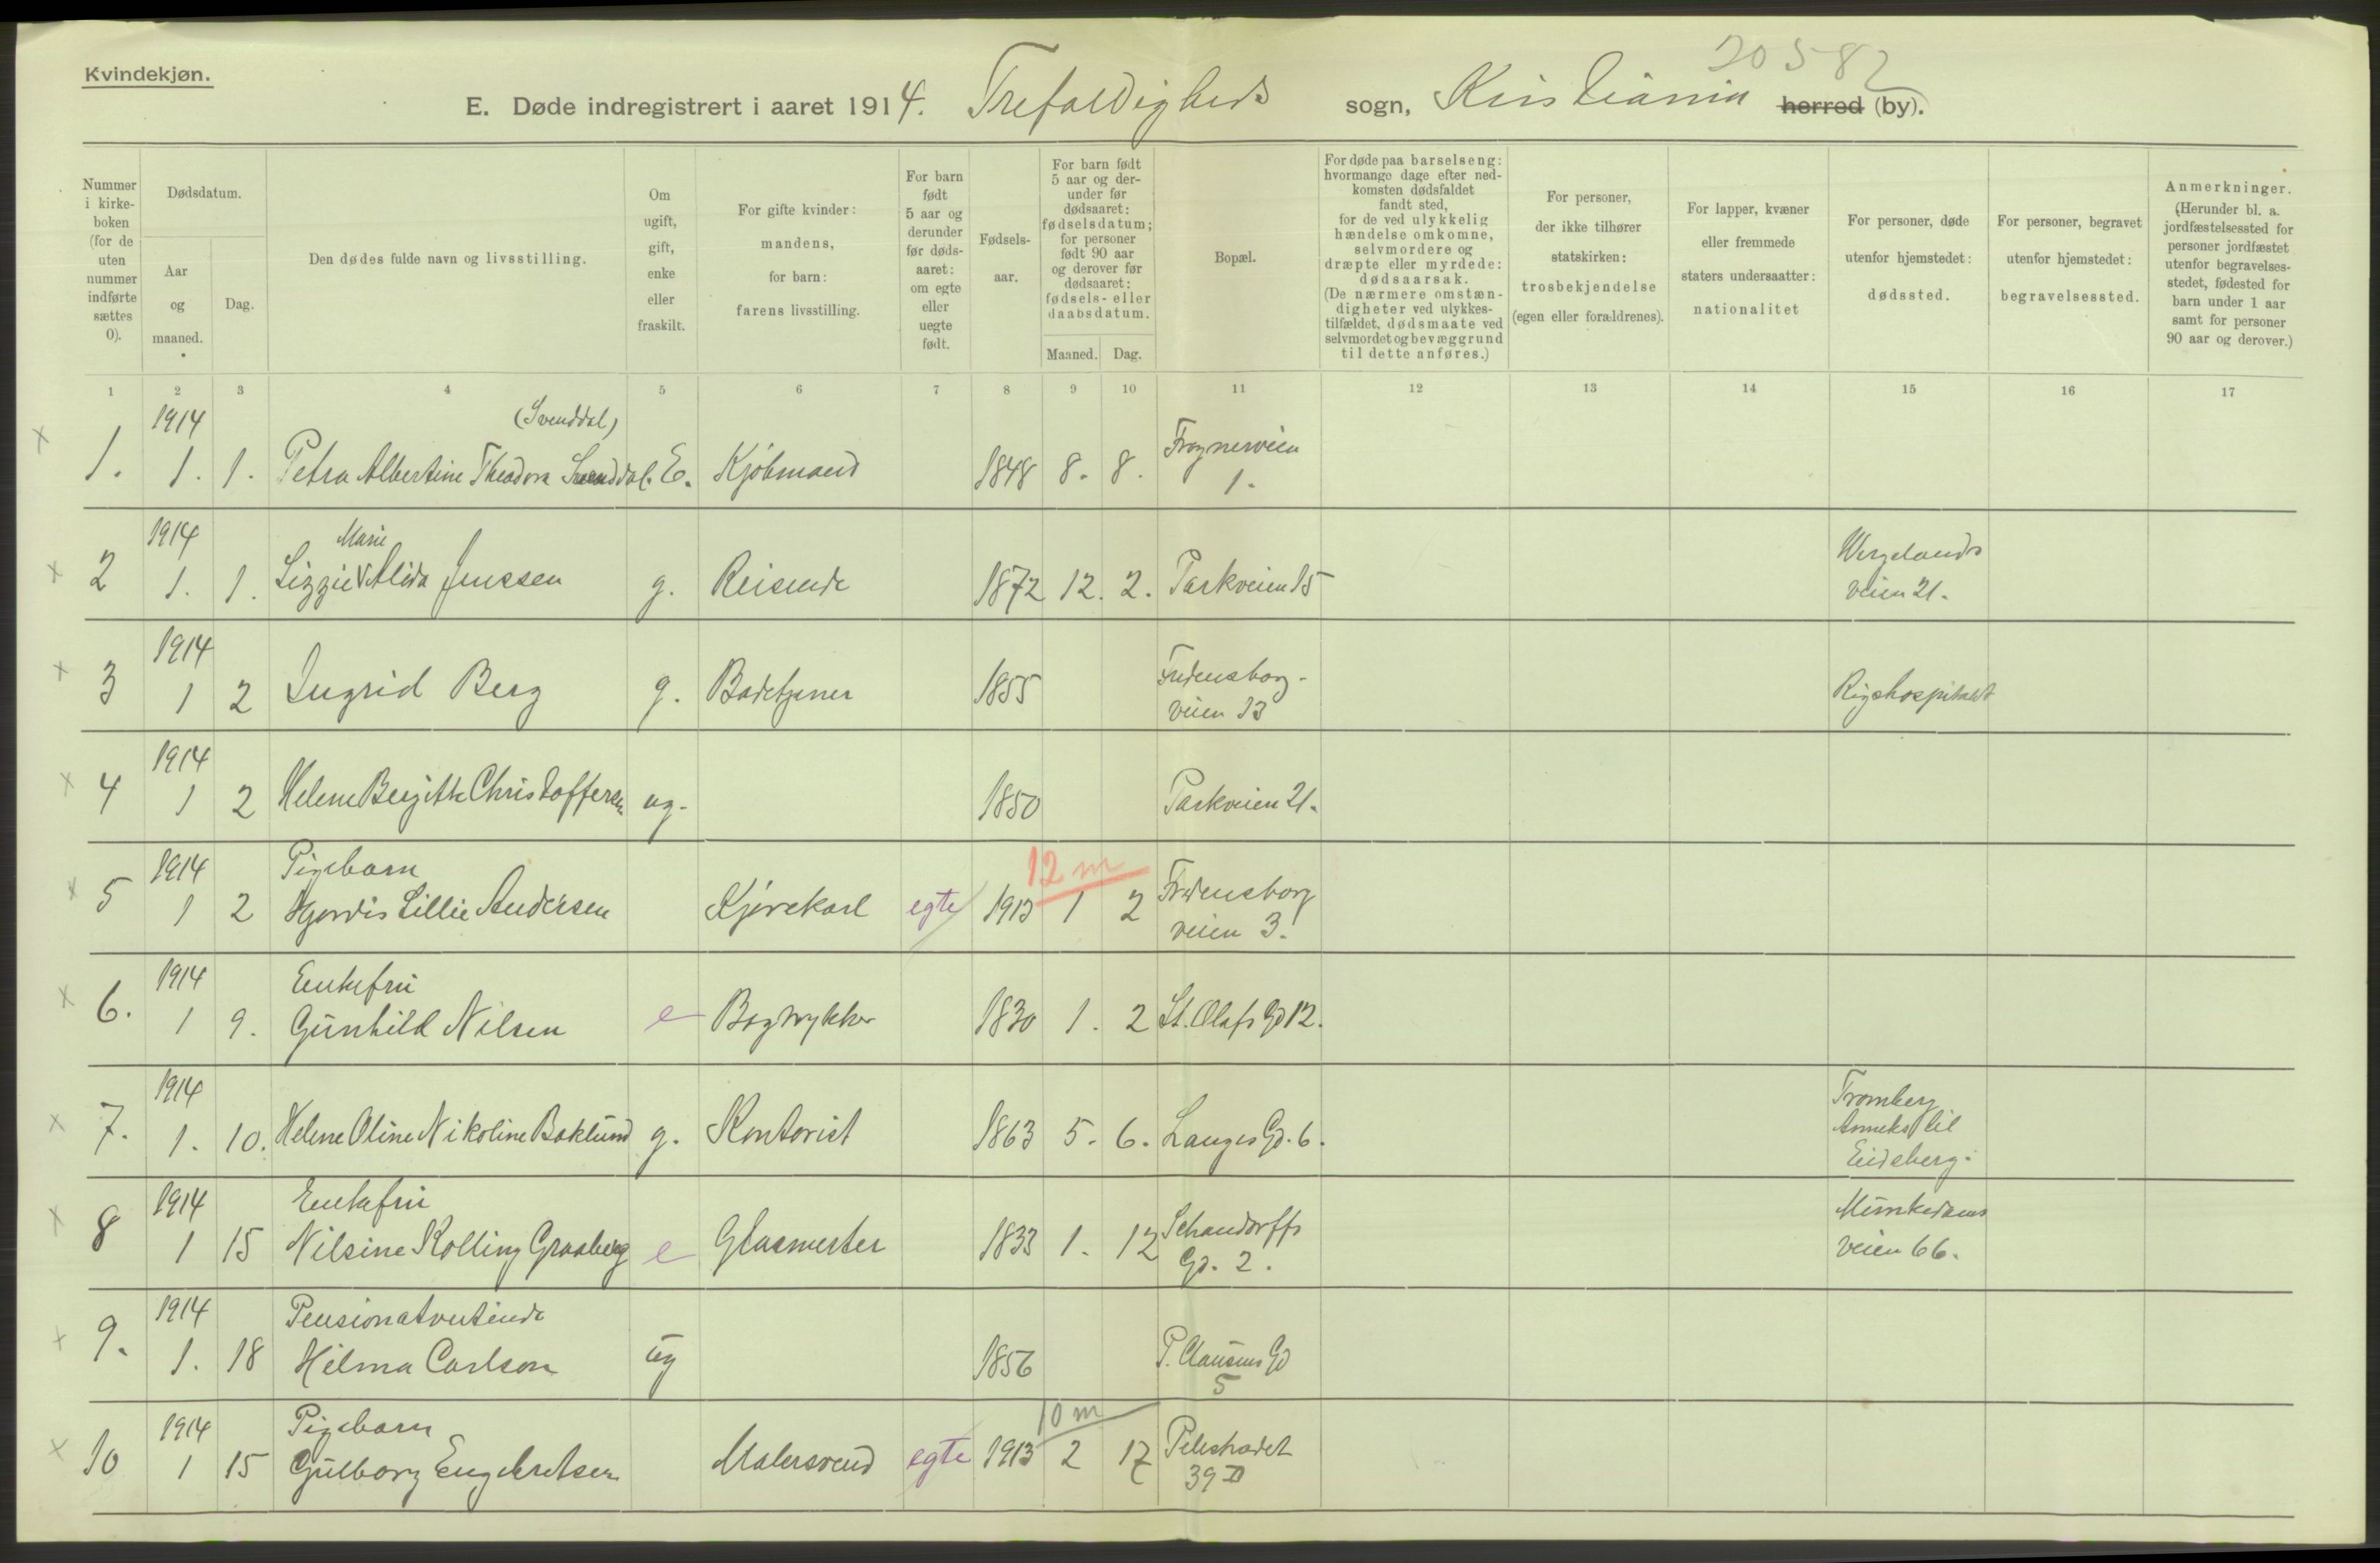 20582
Kvindekjøn.
E. Døde indregistrert i aaret 1914. Trefoldigheds sogn, Kristiania herred (by).
Nummer
i kirke-
boken
(for de
uten
nummer
indførte
sættes
0).
Dødsdatum.
Aar
og
maaned.
Dag.
Den dødes fulde navn og livsstilling.
Om
ugift,
gift,
enke
eller
fraskilt.
For gifte kvinder:
mandens,
for barn:
farens livsstilling.
For barn
født
5 aar og
derunder
før døds-
aaret:
om egte
eller
uegte
født.
Fødsels-
aar.
For barn født
5 aar og der-
under før
dødsaaret:
fødselsdatum;
for personer
født 90 aar
og derover før
dødsaaret:
fødsels- eller
daabsdatum.
Maaned. Dag.
Bopæl.
For døde paa barselseng:
hvormange dage efter ned-
komsten dødsfaldet
fandt sted,
for de ved ulykkelig
hændelse omkomne,
selvmordere og
dræpte eller myrdede:
dødsaarsak.
(De nærmere omstæn-
digheter ved ulykkes-
tilfældet, dødsmaate ved
selvmordet og bevæggrund
til dette anføres.)
For personer,
der ikke tilhører
statskirken:
trosbekjendelse
(egen eller forældrenes).
For lapper, kvæner
eller fremmede
staters undersaatter:
nationalitet
For personer, døde
utenfor hjemstedet:
dødssted.
For personer, begravet
utenfor hjemstedet:
begravelsessted.
Anmerkninger.
(Herunder bl. a.
jordfæstelsessted for
personer jordfæstet
utenfor begravelses-
stedet, fødested for
barn under 1 aar
samt for personer
90 aar og derover.)
1 2 3 4 5 6 7 8 9 10 11 12 13 14 15 16 17
1914 (Svenddal) Frognerveien
1. 1. 1. Petra Albertine Theodora Svenddal. E. Kjøbmand 1848 8. 8. 1.
1914 Marie Wergelands
2 1. 1. Lizzie Alida Jenssen g. Reisende 1872 12. 2. Parkveien 15 veien 21.
1914 Fredensborg-
3 1 2 Ingrid Berg g. Badetjener 1855 veien 13 Rigshospitalet
1914
4 1 2 Helene Bergitte Christoffersen ug. 1850 Parkveien 21.
1914 Pigebarn 12 m Fredensborg
5 1 2 Hjørdis Lillie Andersen Kjørekarl egte 1913 1 2 veien 3.
1914 Enkefru
6. 1 9. Gunhild Nilsen e Bogtrykker 1830 1. 2 St. Olafs Gd 12.
1914 Tromberg
7. 1. 10. Helene Oline Nikoline Boklund g. Kontorist 1863 5. 6. Langes Gd. 6. Anneks til
Eidsberg.
1914 Enkefru Schandorffs Munkedams
8 1 15 Nilsine Kolling Graaberg e Glasmester 1833 1. 12 Gd. 2. veien 66.
1914 Pensionatvertinde
9. 1. 18 Hilma Carlson ug 1856 P. Clausens Gd
5
1914 Pigebarn 10 m Pilestrædet
10 1 15 Gulborg Engebretsen Malersvend egte 1913 2 17 39 II